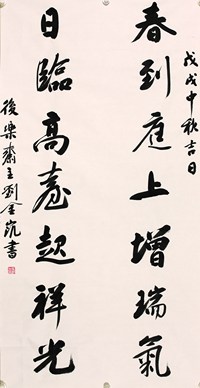 戊戌中秋吉日
春到庭上增瑞氣
日臨高臺起祥光
後樂齋主劉金凱書